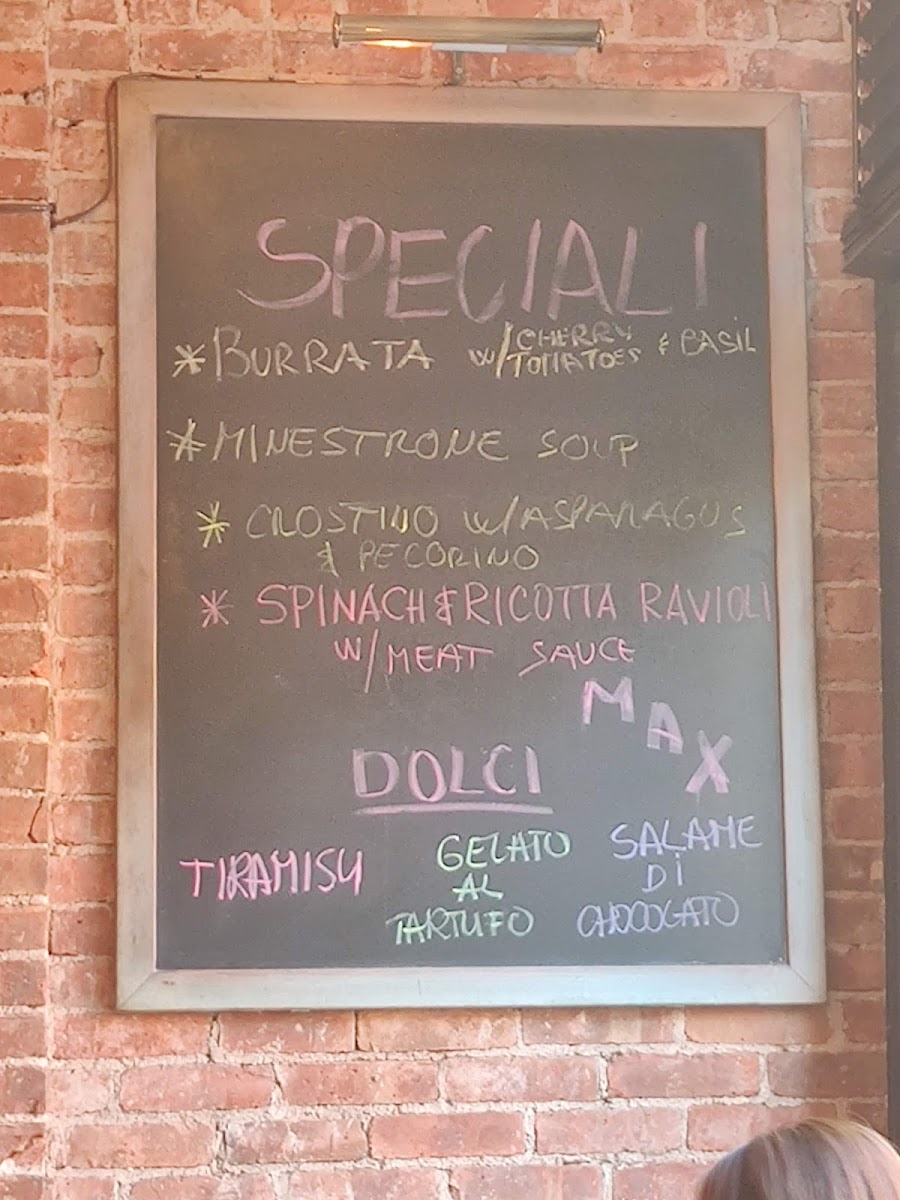 SPECIALI
*BURRATA w/CHERRY TOMATOES & BASIL
*MINESTRONE SOUP
* CROSTINO w/ASPARAGUS
& PECORINO
* SPINACH & RICOTTA RAVIOLI
W/MEAT SAUCE
MAX
DOLCI
TIRAMISU
GELATO
AL
TARTUFO
SALAME
Di
CHOCOLATO